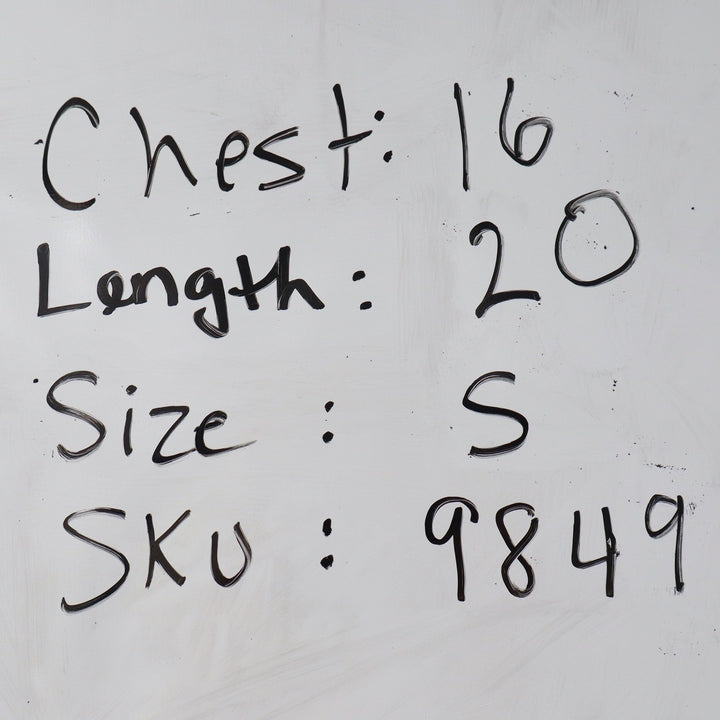 Chest: 16
Length: 20
Size: S
SKU: 9849